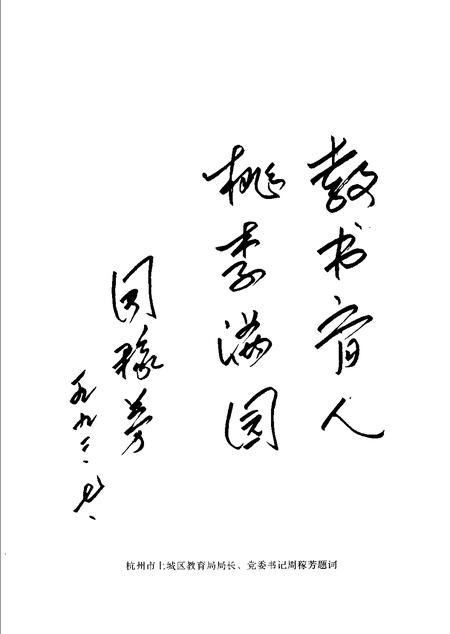 教书育人
桃李满园
周稼芳
一九九三.七.
杭州市上城区教育局局长、党委书记周稼芳题词